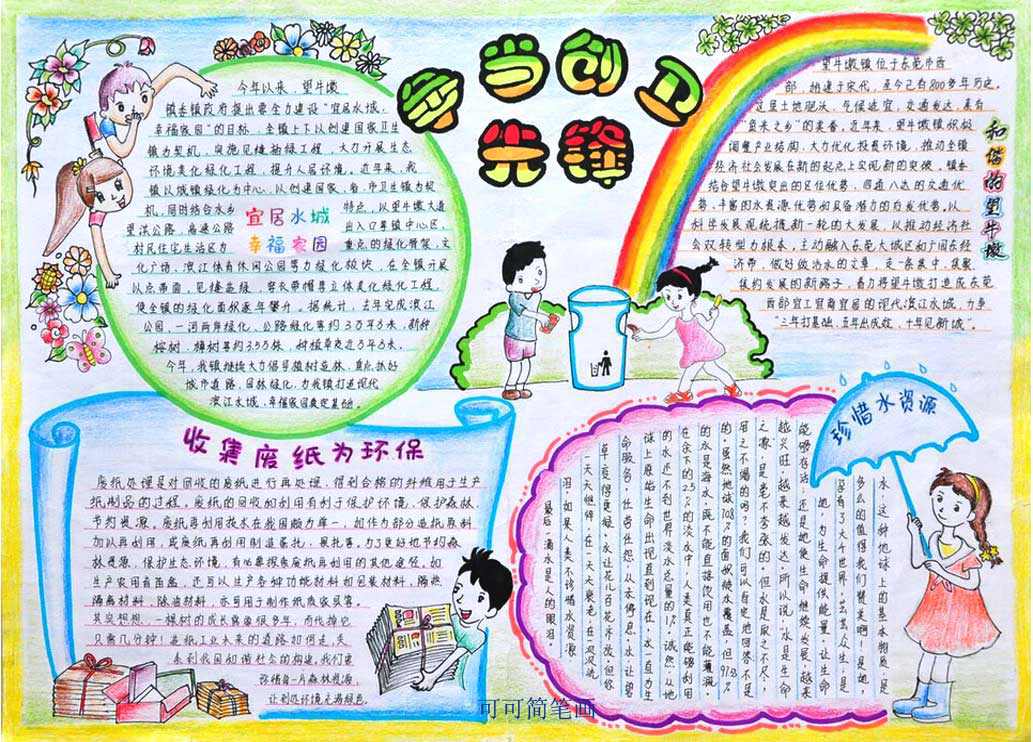 争当创卫
先锋
今年以来，望牛墩
镇委镇政府提出要全力建设“宜居水城，
幸福家园”的目标，全镇上下以创建国家卫生
镇为契机，实施见缝插绿工程，大力开展生态
环境美化绿化工程，提升人居环境。近年来，我
镇以城镇绿化为中心，以创建国家、省、市卫生镇为契
机，同时结合水乡
特点，以望牛墩大道
望洪公路、高速公路
出入口等镇中心区，
村风住宅生活区为
重点的绿化骨架，文
宜居水城
幸福家园
化广场，滨江体育休闲公园等为绿化板块，在全镇开展
以点带面，见缝差绿，穿衣带帽等立体美化绿化工程，
使全镇的绿化面积逐年攀升。据统计，去年完成滨江
公园，一河两岸绿化，公路绿化等约3万多米，新种
树等约3.5万株，种植草皮近3万多米。
今年，我镇继续大力倡导植树造林，重点抓好
城市道路，园林绿化，为我镇打造现代
滨江水城，幸福家园奠定基础。
望牛墩镇位于东莞市西
部，始建于宋代，至今已有800多年历史。
这里土地肥沃，气候适宜，交通发达，素有
“鱼米之乡”的美誉，近年来，望牛墩镇积极
调整产业结构，大力优化投资环境，推动全镇
经济社会发展在新的起点上实现新的突破。镇委
结合望牛墩突出的区位优势，四通八达的交通优
势，丰富的水资源优势和具备潜力的后发优势。以
科学发展观统揽新一轮的大发展，以推动经济社
会双转型为根本，主动融入东莞大城区和广佛东经
济带，做好做活水的文章，走一条集中，集聚
集约发展的新路子，着力将望牛墩打造成东莞
西部宜工宜商宜居的现代滨江水城，力争
“三年打基础，五年出成效，十年见新城”。
和谐的望牛墩
收集废纸为环保
废纸处理是对回收的废纸进行再处理，得到合格的纤维用于生产
纸制品的过程。废纸的回收和利用有利于保护环境，保护森林，
节约资源。废纸再利用技术在我国颇为单一，如作为部分造纸原料
加以再利用，或废纸再利用制造蛋托，果托等。为了更好地节约森
林资源，保护生态环境，有必要探索废纸再利用的其他途径，如
生产农用育苗盘，还可以生产各种功能材料如包装材料，隔热
隔离材料，除油材料，亦可用于制作纸质家具等。
其实想想，一棵树的成长需要很多年，而伐掉它
只需几分钟！造纸工业未来的道路如何走，关
系到我国和谐社会的构建，我们要
珍惜每一片森林资源，
让利改环境充满绿色。
珍惜水资源
水，这种地球上的基本物质，是
多么的值得我们赞美啊！是水
孕育了大千世界，芸芸众生；是
她，为生命提供能量，让生命
能够存活；还是她使生命继续发展，越来
越兴旺，越来越发达，所以说，水是生命
之源，是毫不夸张的。但水是取之不尽，
用之不竭的吗？我们可以肯定地回答不是
的。虽然地球70.8%的面积被水覆盖，但97.5%
的水是海水，既不能直接饮用也不能灌溉。
在余下的2.5%的淡水中，人类真正能够利用
的水还不到世界淡水总量的1%。诚然，从地
球上原始生命出现直到现在，水一直为生
命服务，任劳任怨，从未停息，水让万
草变得更绿，水让花儿百花齐放，但你
一天天继续，在一天天衰老，在一次次流
泪，如果人类不珍惜水资源，
最后一滴水是人的眼泪。
可可简笔画